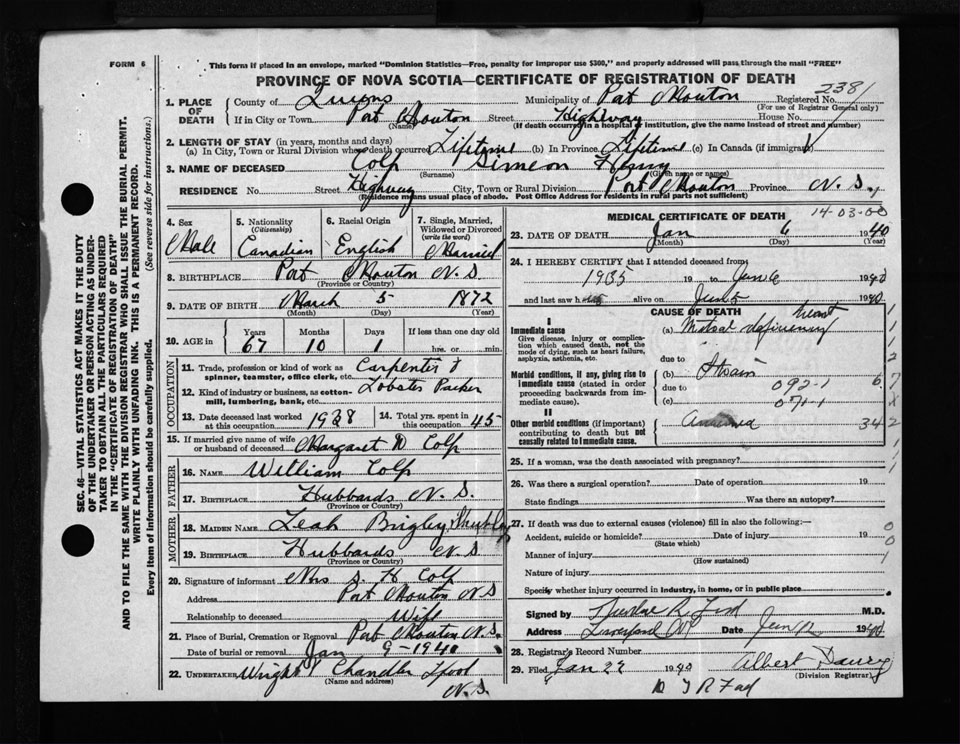 FORM 6
This form if placed in an envelope, marked "Dominion Statistics—Free, penalty for improper use $300," and properly addressed will pass through the mail "FREE"
PROVINCE OF NOVA SCOTIA—CERTIFICATE OF REGISTRATION OF DEATH
2381
1. PLACE OF DEATH County of Queens Municipality of Port Mouton Registered No.
(For use of Registrar General only)
If in City or Town Port Mouton Street Highway House No.
(Name) (If death occurred in a hospital or institution, give the name instead of street and number)
2. LENGTH OF STAY (in years, months and days)
(a) In City, Town or Rural Division where death occurred Lifetime (b) In Province Lifetime (c) In Canada (if immigrant)
3. NAME OF DECEASED Colp Simeon Henry
(Surname) (Given name or names)
RESIDENCE No. Street Highway City, Town or Rural Division Port Mouton Province N.S.
(Residence means usual place of abode. Post Office Address for residents in rural parts not sufficient)
4. Sex Male
5. Nationality (Citizenship) Canadian
6. Racial Origin English
7. Single, Married, Widowed or Divorced (write the word) Married
8. BIRTHPLACE Port Mouton N.S
(Province or Country)
9. DATE OF BIRTH March 5 1872
(Month) (Day) (Year)
10. AGE in Years 67 Months 10 Days 1 If less than one day old hrs. or min.
OCCUPATION
11. Trade, profession or kind of work as spinner, teamster, office clerk, etc. Carpenter &
12. Kind of industry or business, as cotton-mill, lumbering, bank, etc. Lobster Packer
13. Date deceased last worked at this occupation 1938
14. Total yrs. spent in this occupation 45
15. If married give name of wife or husband of deceased Margaret D Colp
FATHER
16. NAME William Colp
17. BIRTHPLACE Hubbards N.S.
(Province or Country)
MOTHER
18. MAIDEN NAME Leah
19. BIRTHPLACE Hubbards N.S
(Province or Country)
20. Signature of informant Mrs S. H Colp
Address Port Mouton N.S
Relationship to deceased Wife
21. Place of Burial, Cremation or Removal Port Mouton N.S.
Date of burial or removal Jan 9-1940
22. UNDERTAKER Wright Chandler
(Name and address)
N.S.
MEDICAL CERTIFICATE OF DEATH
14-03-00
23. DATE OF DEATH Jan 6 1940
(Month) (Day) (Year)
24. I HEREBY CERTIFY that I attended deceased from
1935 19 to Jan 6 1940
and last saw h alive on Jan 5 1940
CAUSE OF DEATH
I
Immediate cause (a) Mitral deficiency heart
Give disease, injury or complication which caused death, not the mode of dying, such as heart failure, asphyxia, asthenia, etc.
due to
Morbid conditions, if any, giving rise to immediate cause (stated in order proceeding backwards from immediate cause).
(b) Strain
due to 092-1
(c) 071-1
II
Other morbid conditions (if important) contributing to death but not causally related to immediate cause.
25. If a woman, was the death associated with pregnancy?
26. Was there a surgical operation? Date of operation 19
State findings Was there an autopsy?
27. If death was due to external causes (violence) fill in also the following:—
Accident, suicide or homicide? Date of injury 19
(State which)
Manner of injury
(How sustained)
Nature of injury
Specify whether injury occurred in industry, in home, or in public place
Signed by M.D.
Address Liverpool NS Date Jan 12 1940
28. Registrar's Record Number
29. Filed Jan 22 1940 Albert
(Division Registrar)
SEC. 46—VITAL STATISTICS ACT MAKES IT THE DUTY
OF THE UNDERTAKER OR PERSON ACTING AS UNDERTAKER TO OBTAIN ALL THE PARTICULARS REQUIRED
IN THE "CERTIFICATE OF REGISTRATION OF DEATH"
AND TO FILE THE SAME WITH THE DIVISION REGISTRAR WHO SHALL ISSUE THE BURIAL PERMIT.
WRITE PLAINLY WITH UNFADING INK. THIS IS A PERMANENT RECORD.
Every item of information should be carefully supplied. (See reverse side for instructions.)